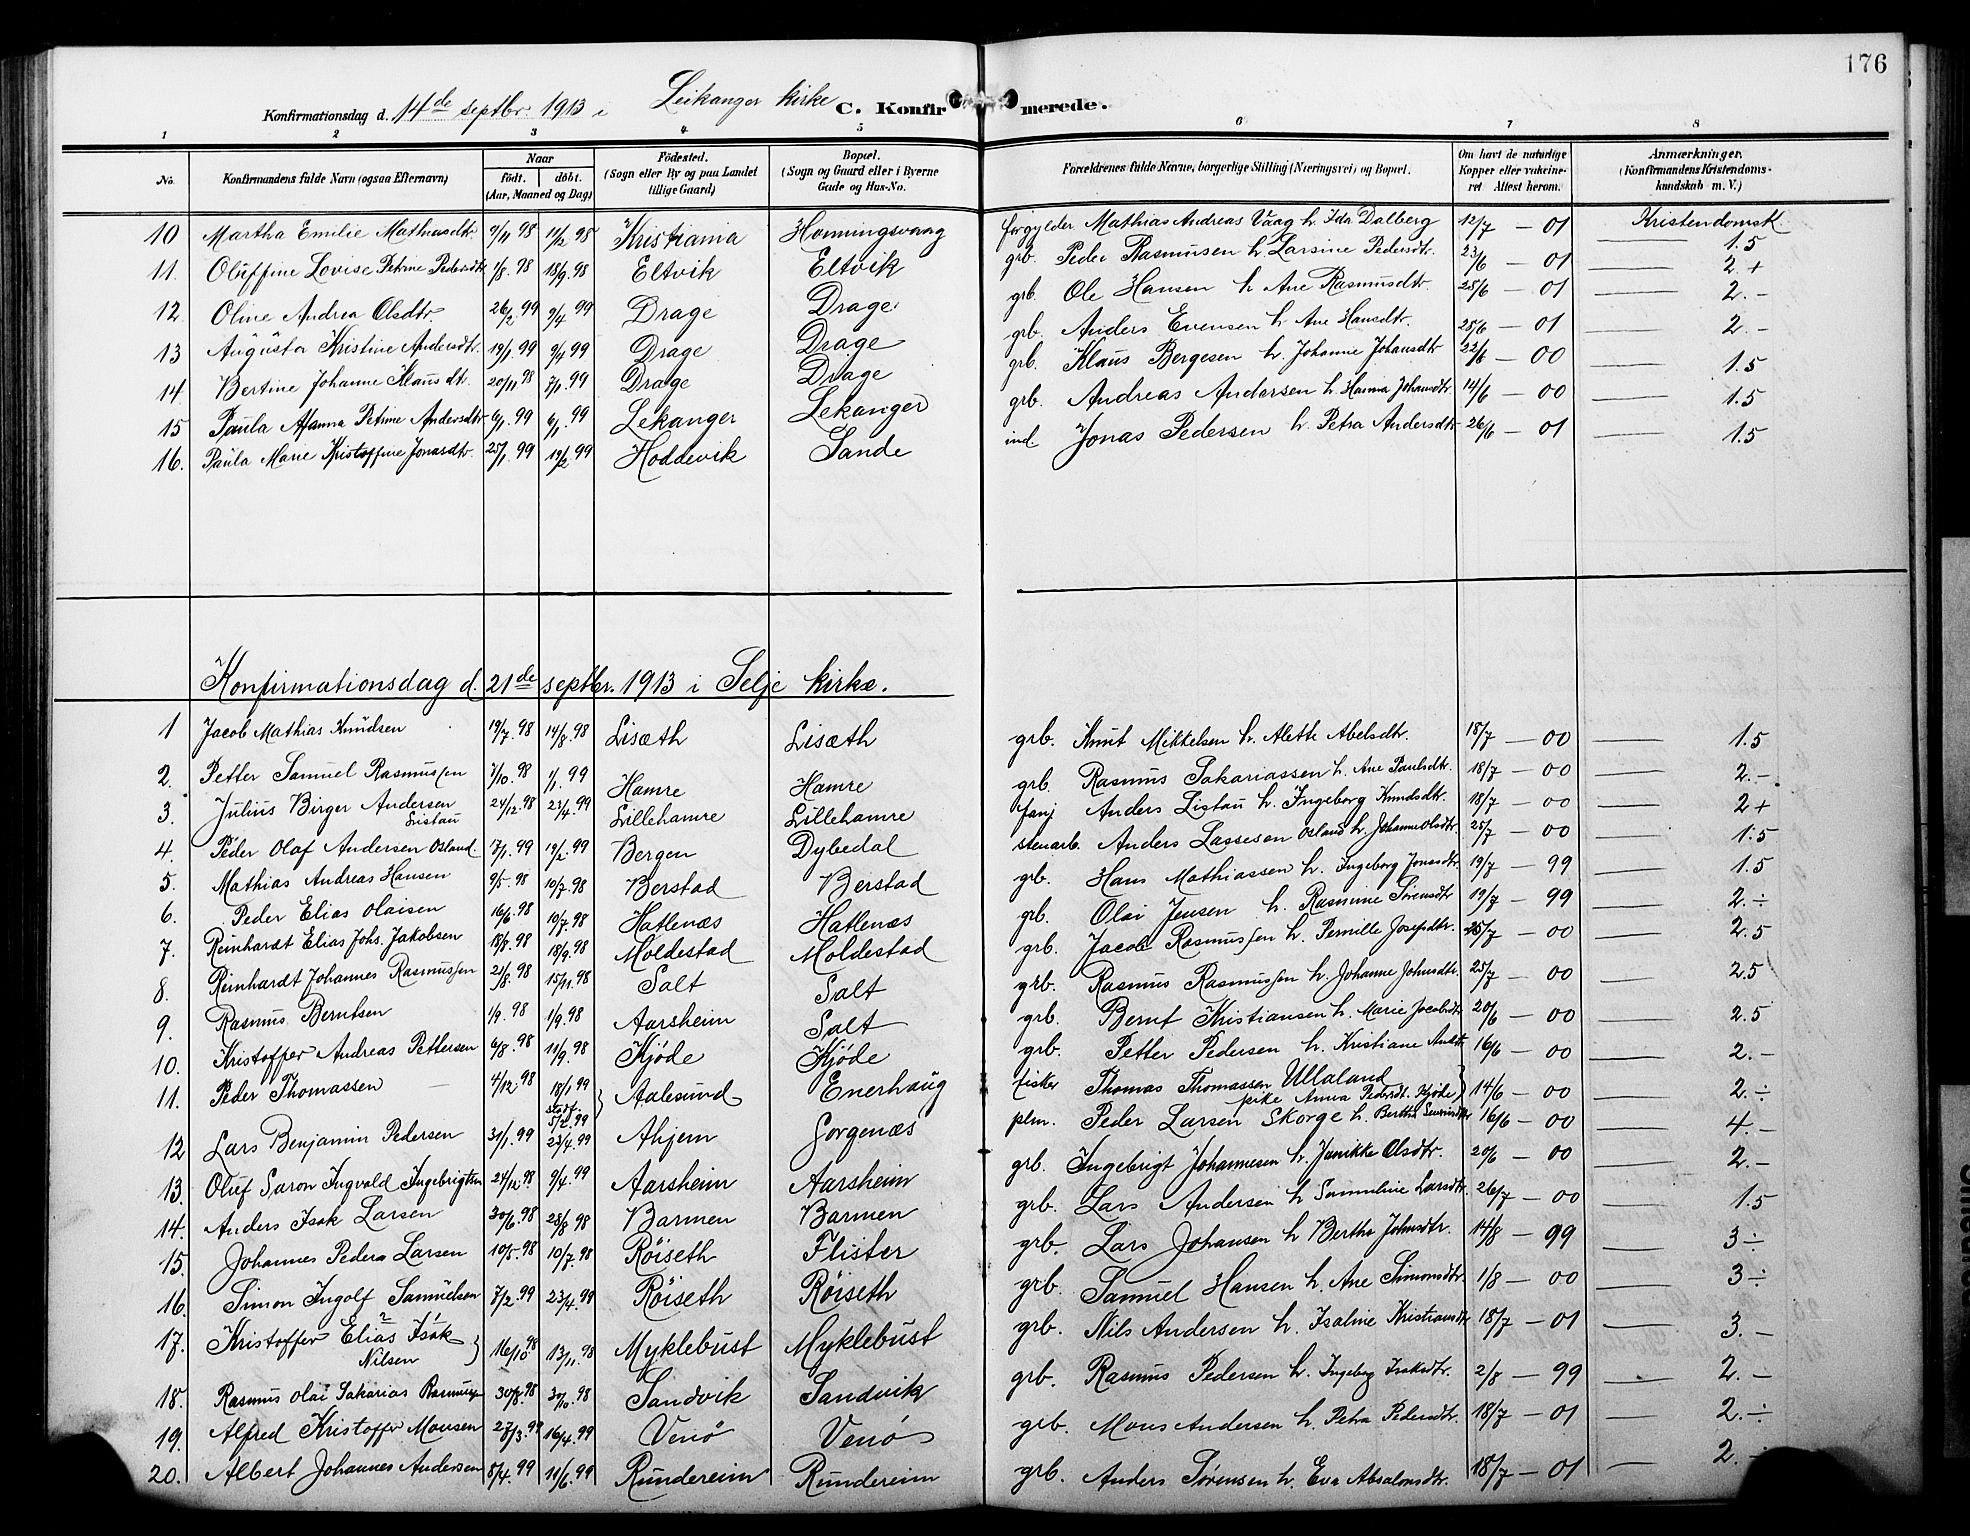 176
Konfirmationsdag d. 14de septbr. 1913 i Leikanger kirke C. Konfirmerede.
1 2 3 4 5 6 7 8
No. Konfirmandens fulde Navn (ogsaa Efternavn) Naar født. døbt. (Aar, Maaned og Dag) Fødested. (Sogn eller By og paa Landet tillige Gaard) Bopæl. (Sogn og Gaard eller i Byerne Gade og Hus-No. Forældrenes fulde Navne, borgerlige Stilling (Næringsvei) og Bopæl. Om havt de naturlige Kopper eller vakcineret Attest herom. Anmærkninger. (Konfirmandens Kristendomskundskab m. V.)
10 Martha Emilie Mathiasdtr. 9/11 98 11/2 98 Kristiania Honningsvaag forgylder Mathias Andreas Vaag h. Ida Dalberg 12/7 — 01 Kristendomsk. 1.5
11. Oluffine Lovise Petrine Pedersdtr 1/8. 98 18/9. 98 Eltvik Eltvik grb. Peder Rasmusen h. Larsine Pedersdtr. 23/6 — 01 — 2+
12. Oline Andrea Olsdtr 26/2. 99 9/4. 99 Drage Drage grb. Ole Hansen h. Ane Rasmusdtr. 25/6 — 01 — 2.-
13 Augusta Kristine Andersdtr. 19/1. 99 9/4 99 Drage Drage grb. Anders Evensen h. Ane Hansdtr. 25/6 — 01 — 2.-
14. Bertine Johanne Klausdtr. 20/11 98 7/1. 99 Drage Drage grb. Klaus Bergesen h. Johanne Johansdtr 22/6 — 00 — 1.5
15 Paula Hanna Petrine Andersdtr 6/1. 99 6/1. 99 Lekanger Lekanger grb. Andreas Andersen h. Hanna Johansdtr 14/6 — 00 — 1.5
16. Paula Marie Kristoffine Jonasdtr. 25/1. 99 19/2 99 Hoddevik Sande ind. Jonas Pedersen h. Petra Andersdtr 26/6 — 01 — 1.5
Konfirmationsdag d. 21de septbr. 1913 i Selje kirke.
1 Jacob Mathias Knudsen 19/7. 98 14/8. 98 Lisæth Lisæth grb. Knut Mikkelsen h. Alette Abelsdtr. 18/7 — 00 — 1.5
2. Petter Samuel Rasmussen 7/10. 98 1/1. 99 Hamre Hamre grb. Rasmus Sakariassen h. Ane Paulsdtr. 18/7 — 00 — 2.-
3. Julius Birger Andersen Listau 24/12. 98 23/4. 99 Lillehamre Lillehamre fanj Anders Listau h. Ingeborg Knudsdtr. 18/7 — 00 — 2+
4. Peder Olaf Andersen Osland 17/1. 99 19/2. 99 Bergen Dybedal stenarb. Anders Lassesen Osland h. Johanne Olsdtr. 25/7 — 00 — 1.5
5. Mathias Andreas Hansen 9/5. 98 10/7. 98 Berstad Berstad grb. Hans Mathiassen h. Ingeborg Jonasdtr. 19/7 — 99 — 1.5
6. Peder Elias Olaisen 16/6. 98 10/7. 98 Hatlenæs Hatlenæs grb. Olai Jensen h. Rasmine Sørensdtr 19/7 — 99 — 2.÷
7. Reinhardt Elias Johs. Jakobsen 18/8. 98 18/9. 98 Moldestad Moldestad grb. Jacob Rasmussen h. Pernille Josefsdtr. 25/7 — 00 — 2.5
8. Reinhardt Johannes Rasmussen 21/8. 98 15/11. 98 Salt Salt grb. Rasmus Rasmussen h. Johanne Johnsdtr. 25/7 — 00 — 2.5
9. Rasmus Berntsen 1/9. 98 1/9. 98 Aarsheim Salt grb. Bernt Kristiansen h. Marie Jacobsdtr 20/6 — 00 — 2.5
10. Kristoffer Andreas Pettersen 6/8. 98 11/9. 98 Kjøde Kjøde grb. Petter Pedersen h. Kristiane 16/6 — 00 — 2.-
11. Peder Thomassen 4/12. 98 18/1 99 stadf. 5/2. 99 } Aalesund Enerhaug fisker Thomas Thomassen Ullaland pike Anna Pedersdt. Kjøde } 14/6 — 00 — 2.÷
12 Lars Benjamin Pedersen 31/1. 99 23/4. 99 Ahjem Gorgenæs plm. Peder Larsen Skorge h. Berthe 16/6 — 00 — 4.-
13. Oluf Saron Ingvald Ingebrigtsen 24/12. 98 9/4. 99 Aarsheim Aarsheim grb. Ingebrigt Johannesen h. Janikke Olsdtr. 20/6 — 00 — 2.-
14. Anders Isak Larsen 30/6. 98 28/8. 98 Barmen Barmen grb. Lars Andersen h. Samueline Larsdtr. 26/7 — 00 — 1.5
15. Johannes Pedera Larsen 10/5. 98 10/7. 98 Røiseth Flister grb. Lars Johansen h. Berthe Johnsdtr. 14/8 — 99 — 3÷
16. Simon Ingolf Samuelsen 7/2. 99 23/4. 99 Røiseth Røiseth grb. Samuel Hansen h. Ane Simonsdtr. 1/8 — 00 — 3÷
17. Kristoffer Elias Isak Nilsen } 16/10. 98 13/11. 98 Myklebust Myklebust grb. Nils Andersen h. Isaline Kristiansdtr 18/7 — 01 — 3.-
18. Rasmus Olai Sakarias Rasmussen 30/8. 98 30/10. 98 Sandvik Sandvik grb. Rasmus Pedersen h. Ingeborg Isaksdtr. 2/8 — 99 — 2.-
19. Alfred Kristoffer Monsen 27/3. 99 16/4. 99 Venø Venø grb. Mons Andersen h. Petra Pedersdtr. 18/7 — 01 — 2.÷
20. Albert Johannes Andersen 8/4. 99 11/6. 99 Rundereim Rundereim grb. Anders Sørensen h. Eva Absalonsdtr. 18/7 — 01 — 2.÷